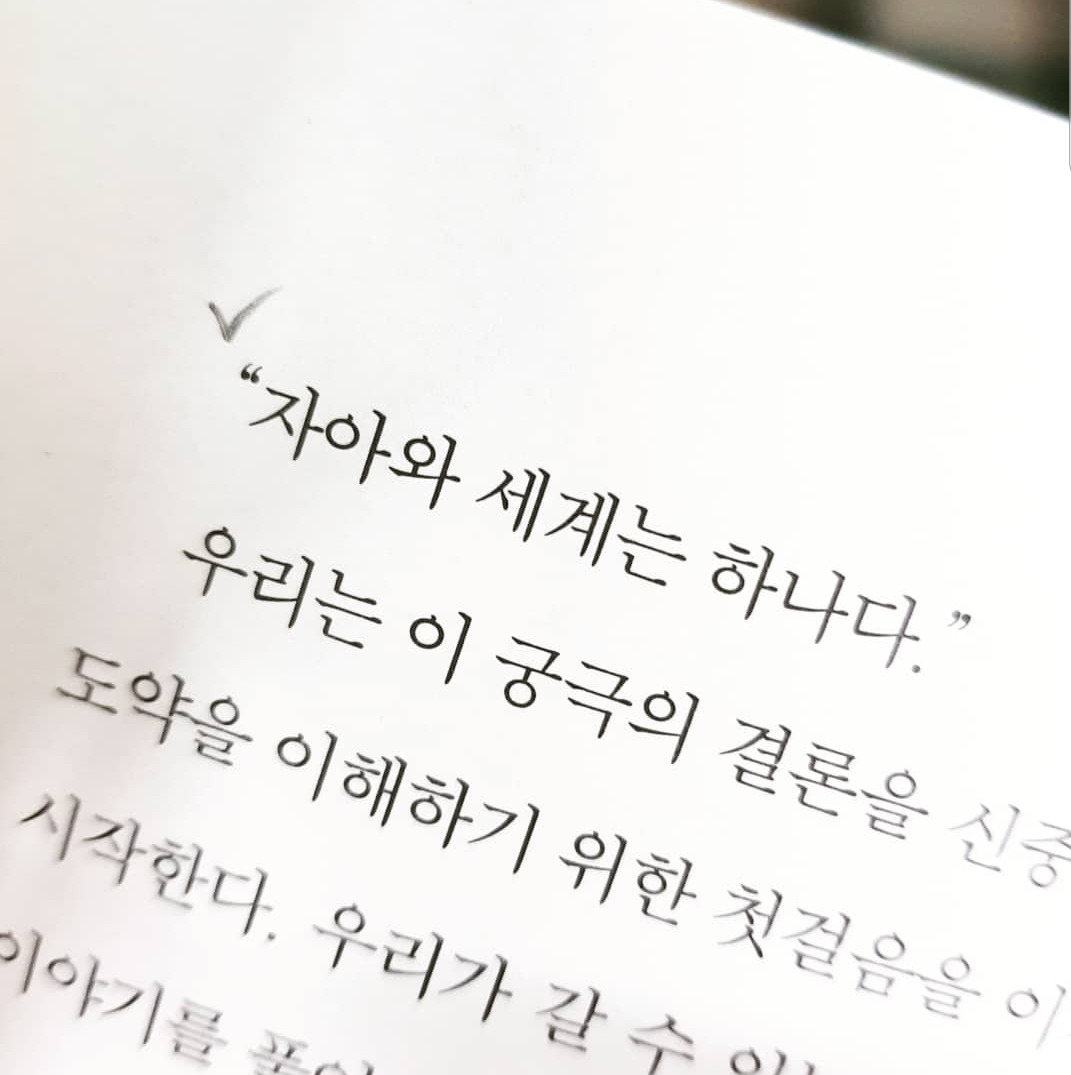 “자아와 세계는 하나다.”
우리는 이 궁극의 결론을
도약을 이해하기 위한 첫걸음을
시작한다. 우리가 갈 수
이야기를